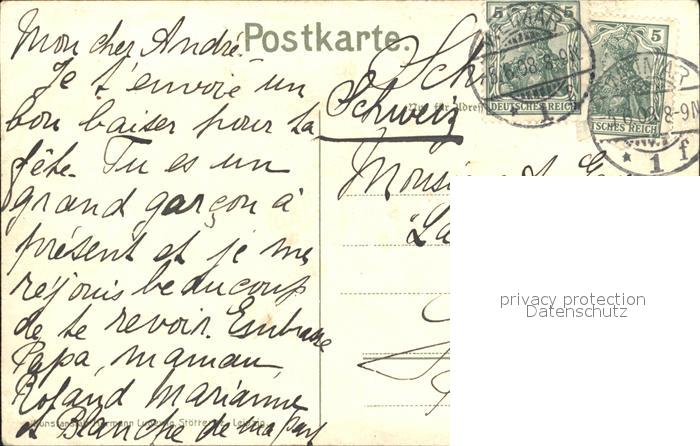 Postkarte.
Mon cher André.
Je t'envoie un
bon baiser pour ta
fête. Tu es un
grand garçon à
présent et je me
réjouis beaucoup
de te revoir. Embrasse
Papa, maman,
Roland Marianne
et Blanche de ma part
Schweiz
Monsieur A.
"La
DEUTSCHES REICH
5
5
TSCHES REICH
8-9N
* 1 f
privacy protection
Datenschutz